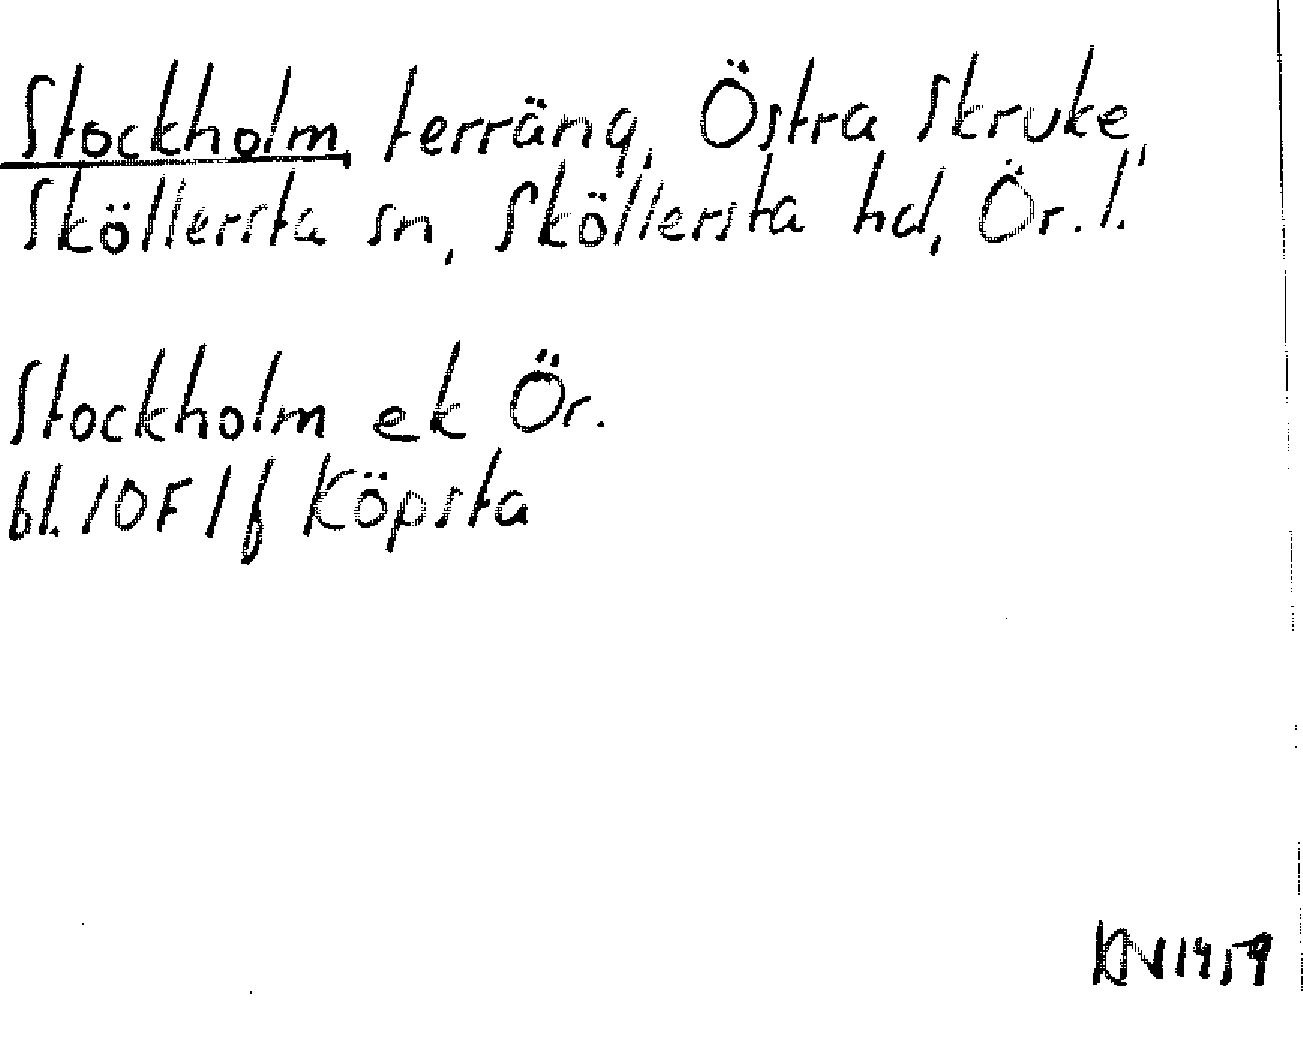 Stockholm, terräng, Östra Skruke,
Sköllersta sn, Sköllersta hd, Ör. l.
Stockholm ek Ör.
bl. 10F1f Köpsta